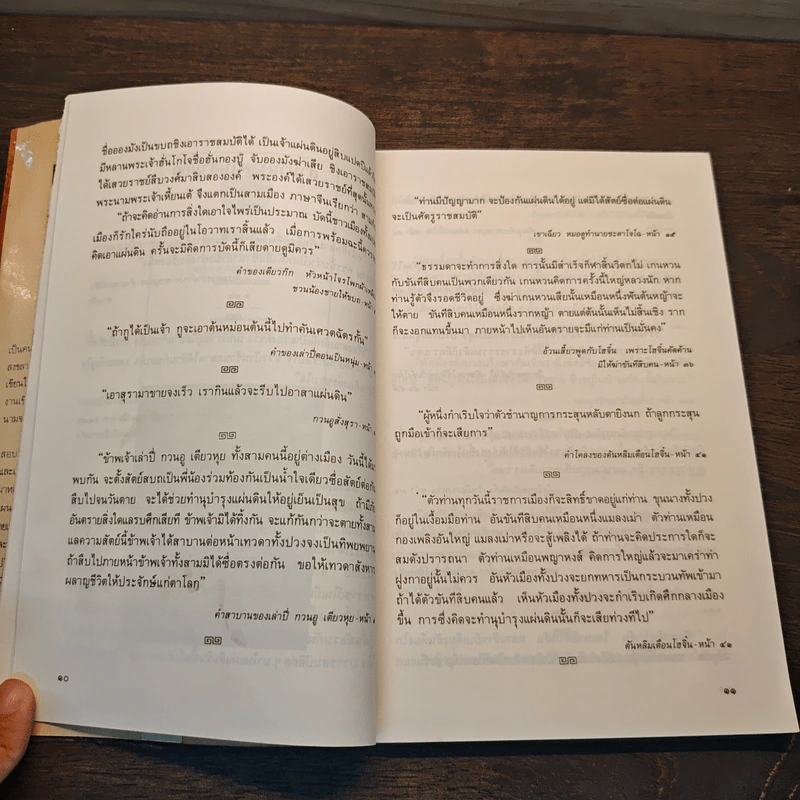 ชื่อองมังเป็นขบถชิงเอาราชสมบัติได้ เป็นเจ้าแผ่นดินอยู่สิบแปดปีแล้ว
มีหลานพระเจ้าฮั่นโกโจชื่อฮั่นกองบู๊ จับองมังฆ่าเสีย ชิงเอาราชสม
ได้เสวยราชย์สืบวงศ์มาสิบสององค์ พระองค์ได้เสวยราชย์ที่สุดนั้น
พระนามพระเจ้าเหี้ยนเต้ จึงแตกเป็นสามเมือง ภาษาจีนเรียกว่า
“ถ้าจะคิดอ่านการสิ่งใดเอาใจไพร่เป็นประมาณ บัดนี้ชาวเมืองทั้ง
เมืองก็รักใคร่นับถืออยู่ในโอวาทเราสิ้นแล้ว เมื่อการพร้อมฉะนี้
คิดเอาแผ่นดิน ครั้นจะมิคิดการบัดนี้ก็เสียดายดูมิควร”
คำของเตียวก๊ก หัวหน้าโจรโพกผ้า
ชวนน้องชายให้ขบถ-หน้า
“ถ้ากูได้เป็นเจ้า กูจะเอาต้นหม่อนต้นนี้ไปทำคันเศวตฉัตรกั้น”
คำของเล่าปี่ตอนเป็นหนุ่ม-หน้า
“เอาสุรามาขายจงเร็ว เรากินแล้วจะรีบไปอาสาแผ่นดิน”
กวนอูสั่งสุรา-หน้า
“ข้าพเจ้าเล่าปี่ กวนอู เตียวหุย ทั้งสามคนนี้อยู่ต่างเมือง วันนี้ได้มา
พบกัน จะตั้งสัตย์สบถเป็นพี่น้องร่วมท้องกันเป็นน้ำใจเดียวซื่อสัตย์ต่อกัน
สืบไปจนวันตาย จะได้ช่วยทำนุบำรุงแผ่นดินให้อยู่เย็นเป็นสุข ถ้ามีภัย
อันตรายสิ่งใดแลรบศึกเสียที ข้าพเจ้ามิได้ทิ้งกัน จะแก้กันกว่าจะตายทั้งสาม
แลความสัตย์นี้ข้าพเจ้าได้สาบานต่อหน้าเทวดาทั้งปวงจงเป็นทิพพยาน
ถ้าสืบไปภายหน้าข้าพเจ้าทั้งสามมิได้ซื่อตรงต่อกัน ขอให้เทวดาสังหาร
ผลาญชีวิตให้ประจักษ์แก่ตาโลก”
คำสาบานของเล่าปี่ กวนอู เตียวหุย-หน้า
๑๐
“ท่านมีปัญญามาก จะป้องกันแผ่นดินได้อยู่ แต่มิได้สัตย์ซื่อต่อแผ่นดิน
จะเป็นศัตรูราชสมบัติ”
เขาเฉียว หมอดูทำนายชะตาโจโฉ-หน้า ๑๕
“ธรรมดาจะทำการสิ่งใด การนั้นมิสำเร็จก็หาสิ้นวิตกไม่ เกนหวน
กับขันทีสิบคนเป็นพวกเดียวกัน เกนหวนคิดการครั้งนี้ใหญ่หลวงนัก หาก
ท่านรู้ตัวจึงรอดชีวิตอยู่ ซึ่งฆ่าเกนหวนเสียนั้นเหมือนหนึ่งฟันต้นหญ้าจะ
ให้ตาย ขันทีสิบคนเหมือนหนึ่งรากหญ้า ตายแต่ต้นนั้นเห็นไม่สิ้นเชิง ราก
ก็จะงอกแทนขึ้นมา ภายหน้าไปเห็นอันตรายจะมีแก่ท่านเป็นมั่นคง”
อ้วนเสี้ยวพูดกับโฮจิ๋น เพราะโฮจิ๋นคัดค้าน
มิให้ฆ่าขันทีสิบคน-หน้า ๓๖
“ผู้หนึ่งกำเริบใจว่าตัวชำนาญการกระสุนหลับตายิงนก ถ้าลูกกระสุน
ถูกมือเข้าก็จะเสียการ”
คำโคลงของตันหลิมเตือนโฮจิ๋น-หน้า ๔๑
“ตัวท่านทุกวันนี้ราชการเมืองก็จะสิทธิ์ขาดอยู่แก่ท่าน ขุนนางทั้งปวง
ก็อยู่ในเงื้อมมือท่าน อันขันทีสิบคนเหมือนหนึ่งแมลงเม่า ตัวท่านเหมือน
กองเพลิงอันใหญ่ แมลงเม่าหรือจะสู้เพลิงได้ ถ้าท่านจะคิดประการใดก็จะ
สมดังปรารถนา ตัวท่านเหมือนพญาหงส์ คิดการใหญ่แล้วจะมาเคร่าท่า
ฝูงกาอยู่นั้นไม่ควร อันหัวเมืองทั้งปวงจะยกทหารเป็นกระบวนทัพเข้ามา
ถ้าได้ตัวขันทีสิบคนแล้ว เห็นหัวเมืองทั้งปวงจะกำเริบเกิดศึกกลางเมือง
ขึ้น การซึ่งคิดจะทำนุบำรุงแผ่นดินนั้นก็จะเสียท่วงทีไป”
ตันหลิมเตือนโฮจิ๋น-หน้า ๔๑
๑๑